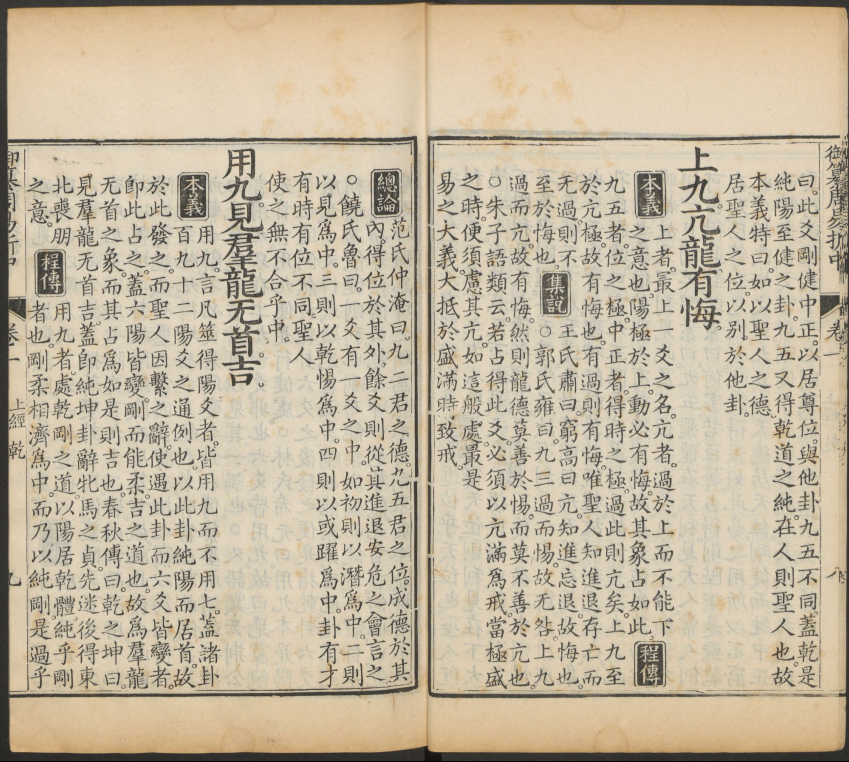 御纂周易折中
卷一
八
曰。此爻剛健中正。以居尊位。與他卦九五不同。蓋乾是
純陽至健之卦。九五又得乾道之純。在人則聖人也。故
本義特曰。如以聖人之德。
居聖人之位。以別於他卦。
上九。亢龍有悔。
本義
上者。最上一爻之名。亢者。過於上而不能下
之意也。陽極於上。動必有悔。故其象占如此。
程傳
九五者。位之極。中正者。得時之極。過此則亢矣。上九至
於亢極。故有悔也。有過則有悔。唯聖人知進退存亡。而
无過。則不
至於悔也。
集說
王氏肅曰。窮高曰亢。知進忘退。故悔也。
○郭氏雍曰。九三過而惕。故无咎。上九
過而亢。故有悔。然則龍德莫善於惕。而莫不善於亢也。
○朱子語類云。若占得此爻。必須以亢滿為戒。當極盛
之時。便須慮其亢。如這般處。最是
易之大義。大抵於盛滿時致戒。
總論
范氏仲淹曰。九二君之德。九五君之位。成德於其
內。得位於其外。餘爻則從其進退安危之會言之。
○饒氏魯曰。一爻有一爻之中。如初則以潛為中。二則
以見為中。三則以乾惕為中。四則以或躍為中。卦有才
有時有位不同。聖人
使之無不合乎中。
用九。見羣龍无首吉。
本義
用九。言凡筮得陽爻者。皆用九而不用七。蓋諸卦
百九十二陽爻之通例也。以此卦純陽而居首。故
於此發之。而聖人因繫之辭。使遇此卦而六爻皆變者。
卽此占之。蓋六陽皆變。剛而能柔。吉之道也。故為羣龍
无首之象。而其占為如是則吉也。春秋傳曰。乾之坤曰。
見羣龍无首吉。蓋卽純坤卦辭。牝馬之貞。先迷後得。東
北喪朋
之意。
程傳
用九者。處乾剛之道。以陽居乾體。純乎剛
者也。剛柔相濟為中。而乃以純剛。是過乎
御纂周易折中
卷一
上經 乾
九